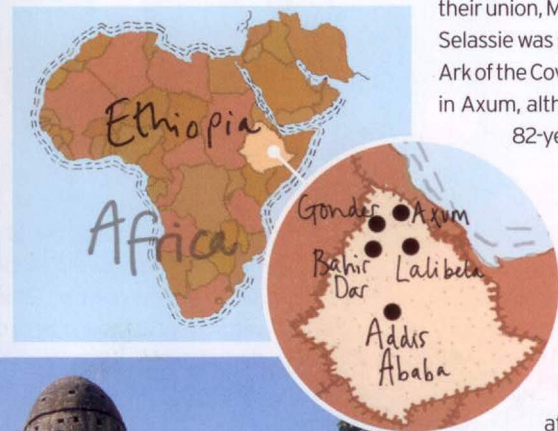 their union, M
Selassie was
Ark of the Cov
in Axum, alth
82-ye
Ethiopia
Africa
Gonder Axum
Bahir
Dar
Lalibela
Addis
Ababa
at